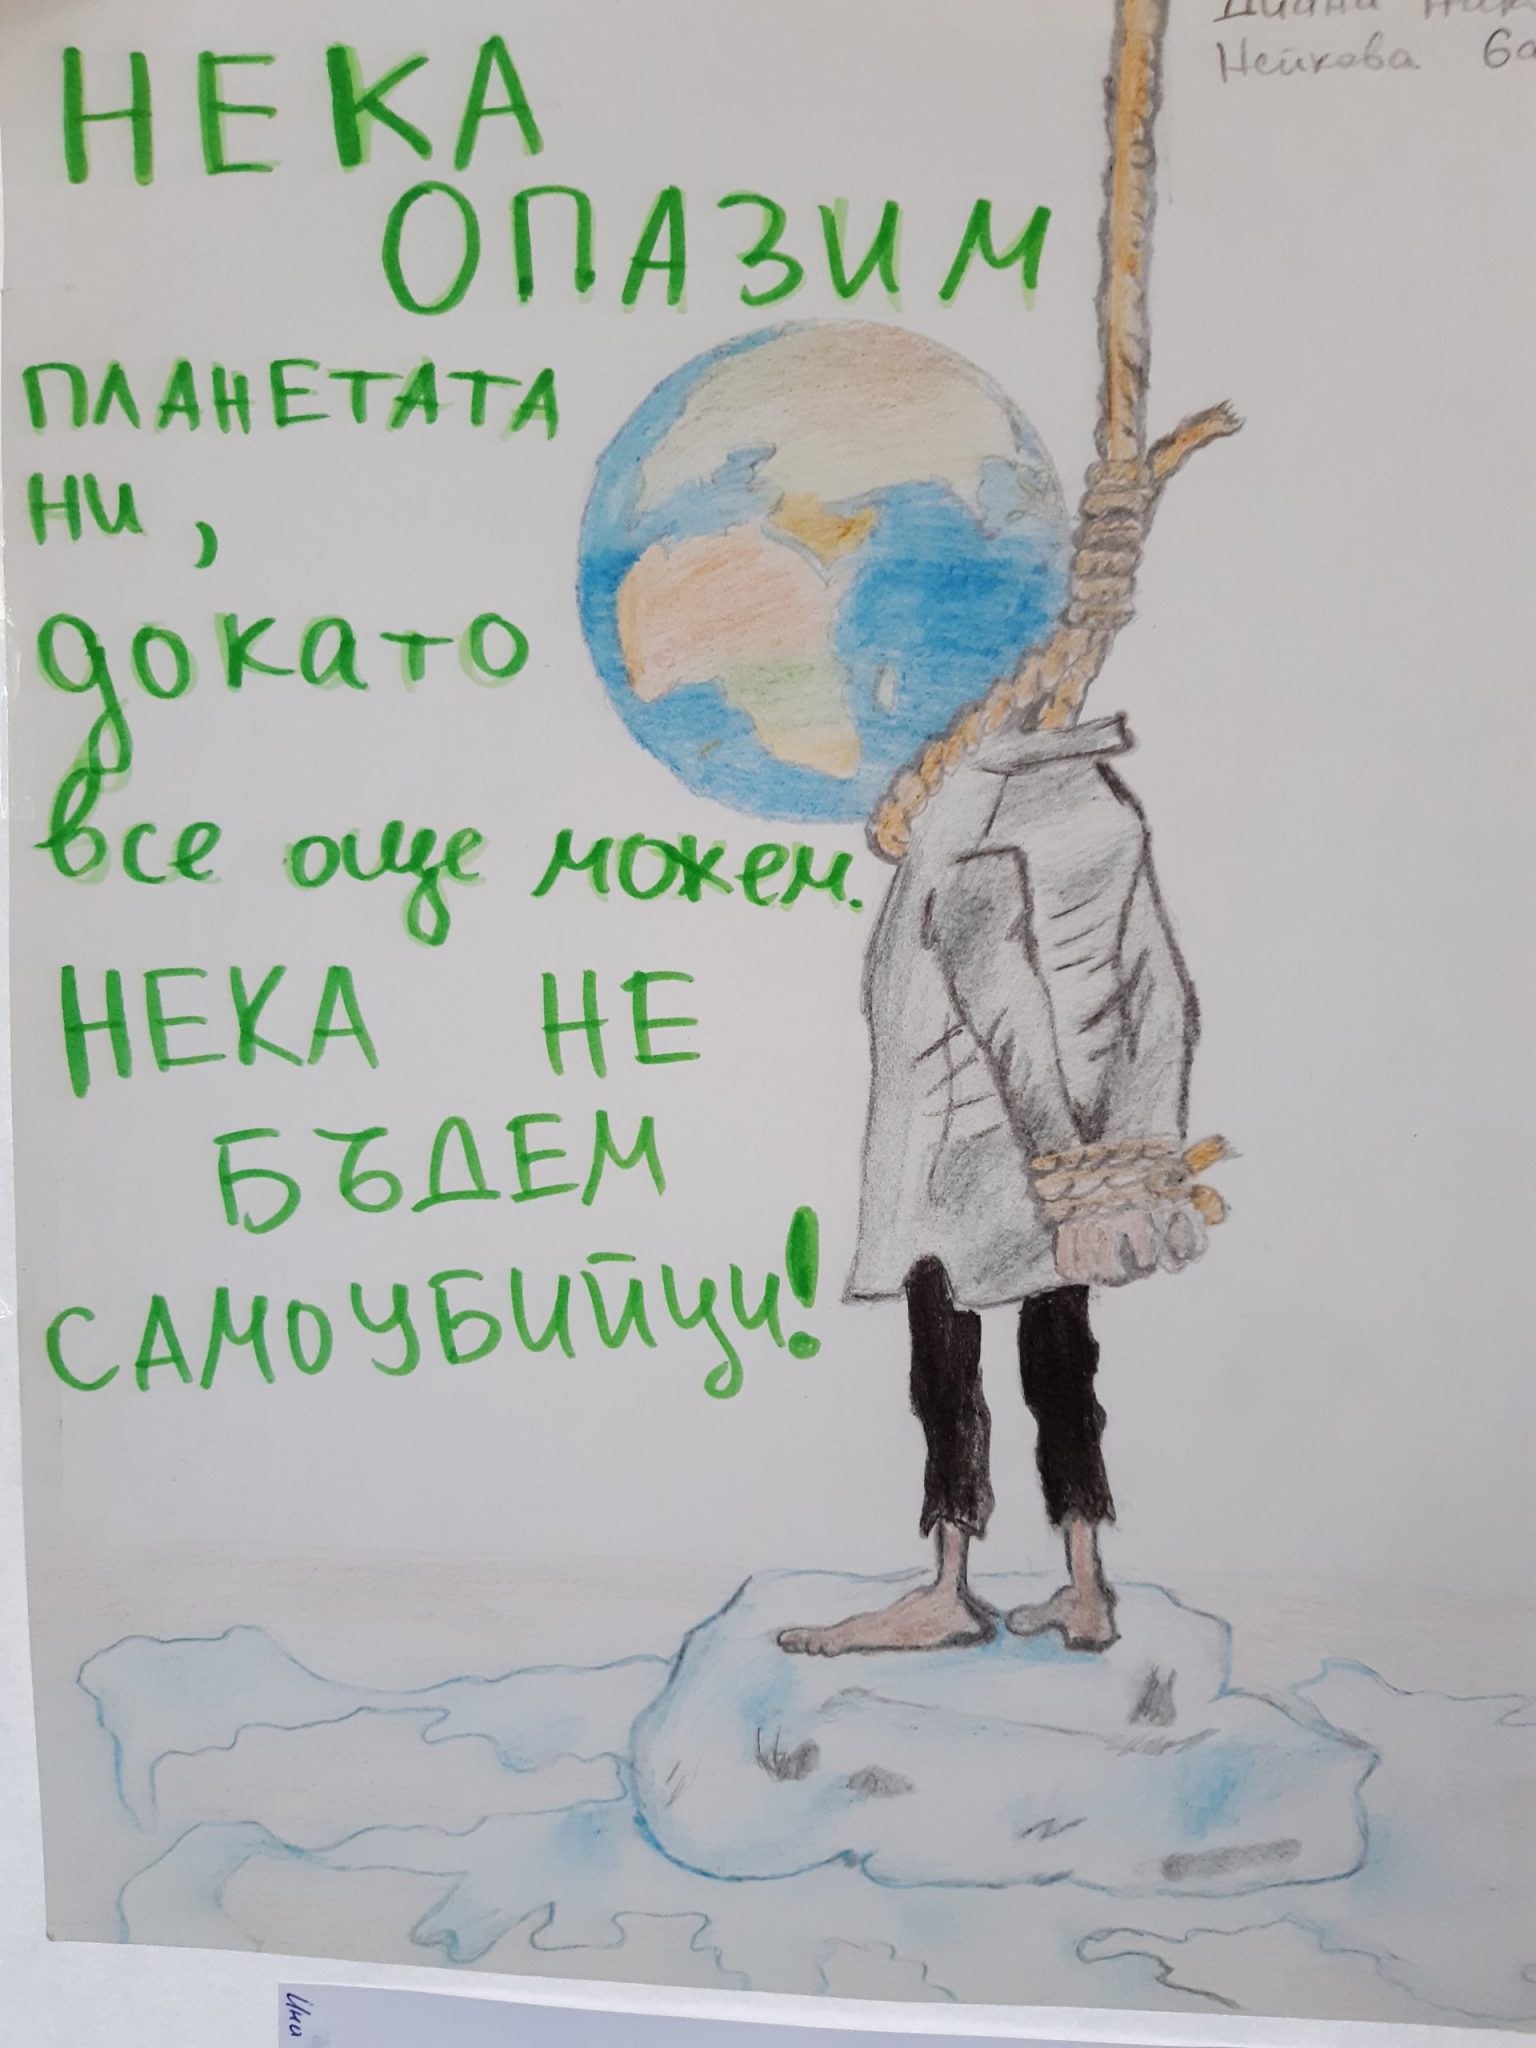 Диана
Нейкова 6а
НЕКА
ОПАЗИМ
ПЛАНЕТАТА
НИ,
докато
все още можем.
НЕКА НЕ
БЪДЕМ
САМОУБИЙЦИ!
Ина